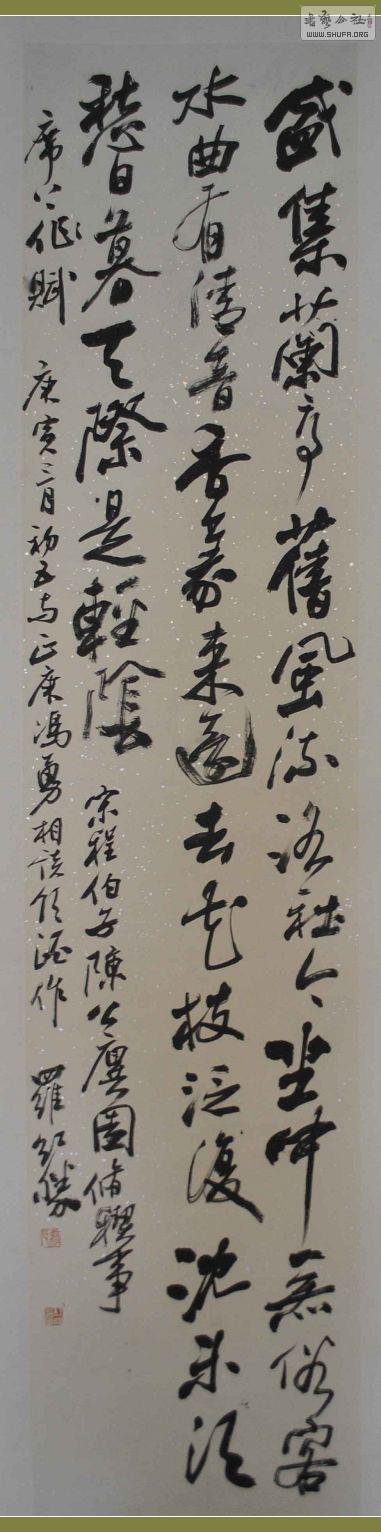 書藝公社
WWW.SHUFA.ORG
盛集蘭亭舊風流洛社今坐中無俗客
水曲有清音香篆来還去花枝泛復沈未須
愁日暮天際是輕陰 宋程伯子陳公廙園脩禊事
席上作賦 庚寅三月初五与正 馮勇相談 作 羅紅勝